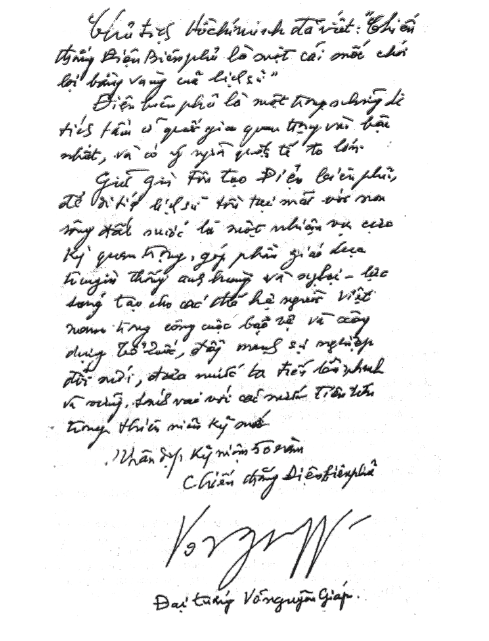 "Chủ tịch Hồ Chí Minh đã viết: "Chiến
thắng Điện Biên Phủ là một cái mốc chói
lọi bằng vàng của lịch sử"
Điện Biên Phủ là một trong những di
tích tầm cỡ quốc gia quan trọng vào bậc
nhất, và có ý nghĩa quốc tế to lớn.
Giữ gìn tôn tạo Điện Biên Phủ,
để di tích lịch sử tồn tại mãi với non
sông đất nước là một nhiệm vụ cực
kỳ quan trọng, góp phần giáo dục
truyền thống anh hùng và nghị lực
sáng tạo cho các thế hệ người Việt
nam trong công cuộc bảo vệ và xây
dựng Tổ Quốc, đẩy mạnh sự nghiệp
đổi mới, đưa nước ta tiến lên nhanh
và vững, sánh vai với các nước tiên tiến
trong thiên niên kỷ mới
Nhân dịp kỷ niệm 50 năm
Chiến thắng Điện Biên Phủ
Đại tướng Võ Nguyên Giáp.